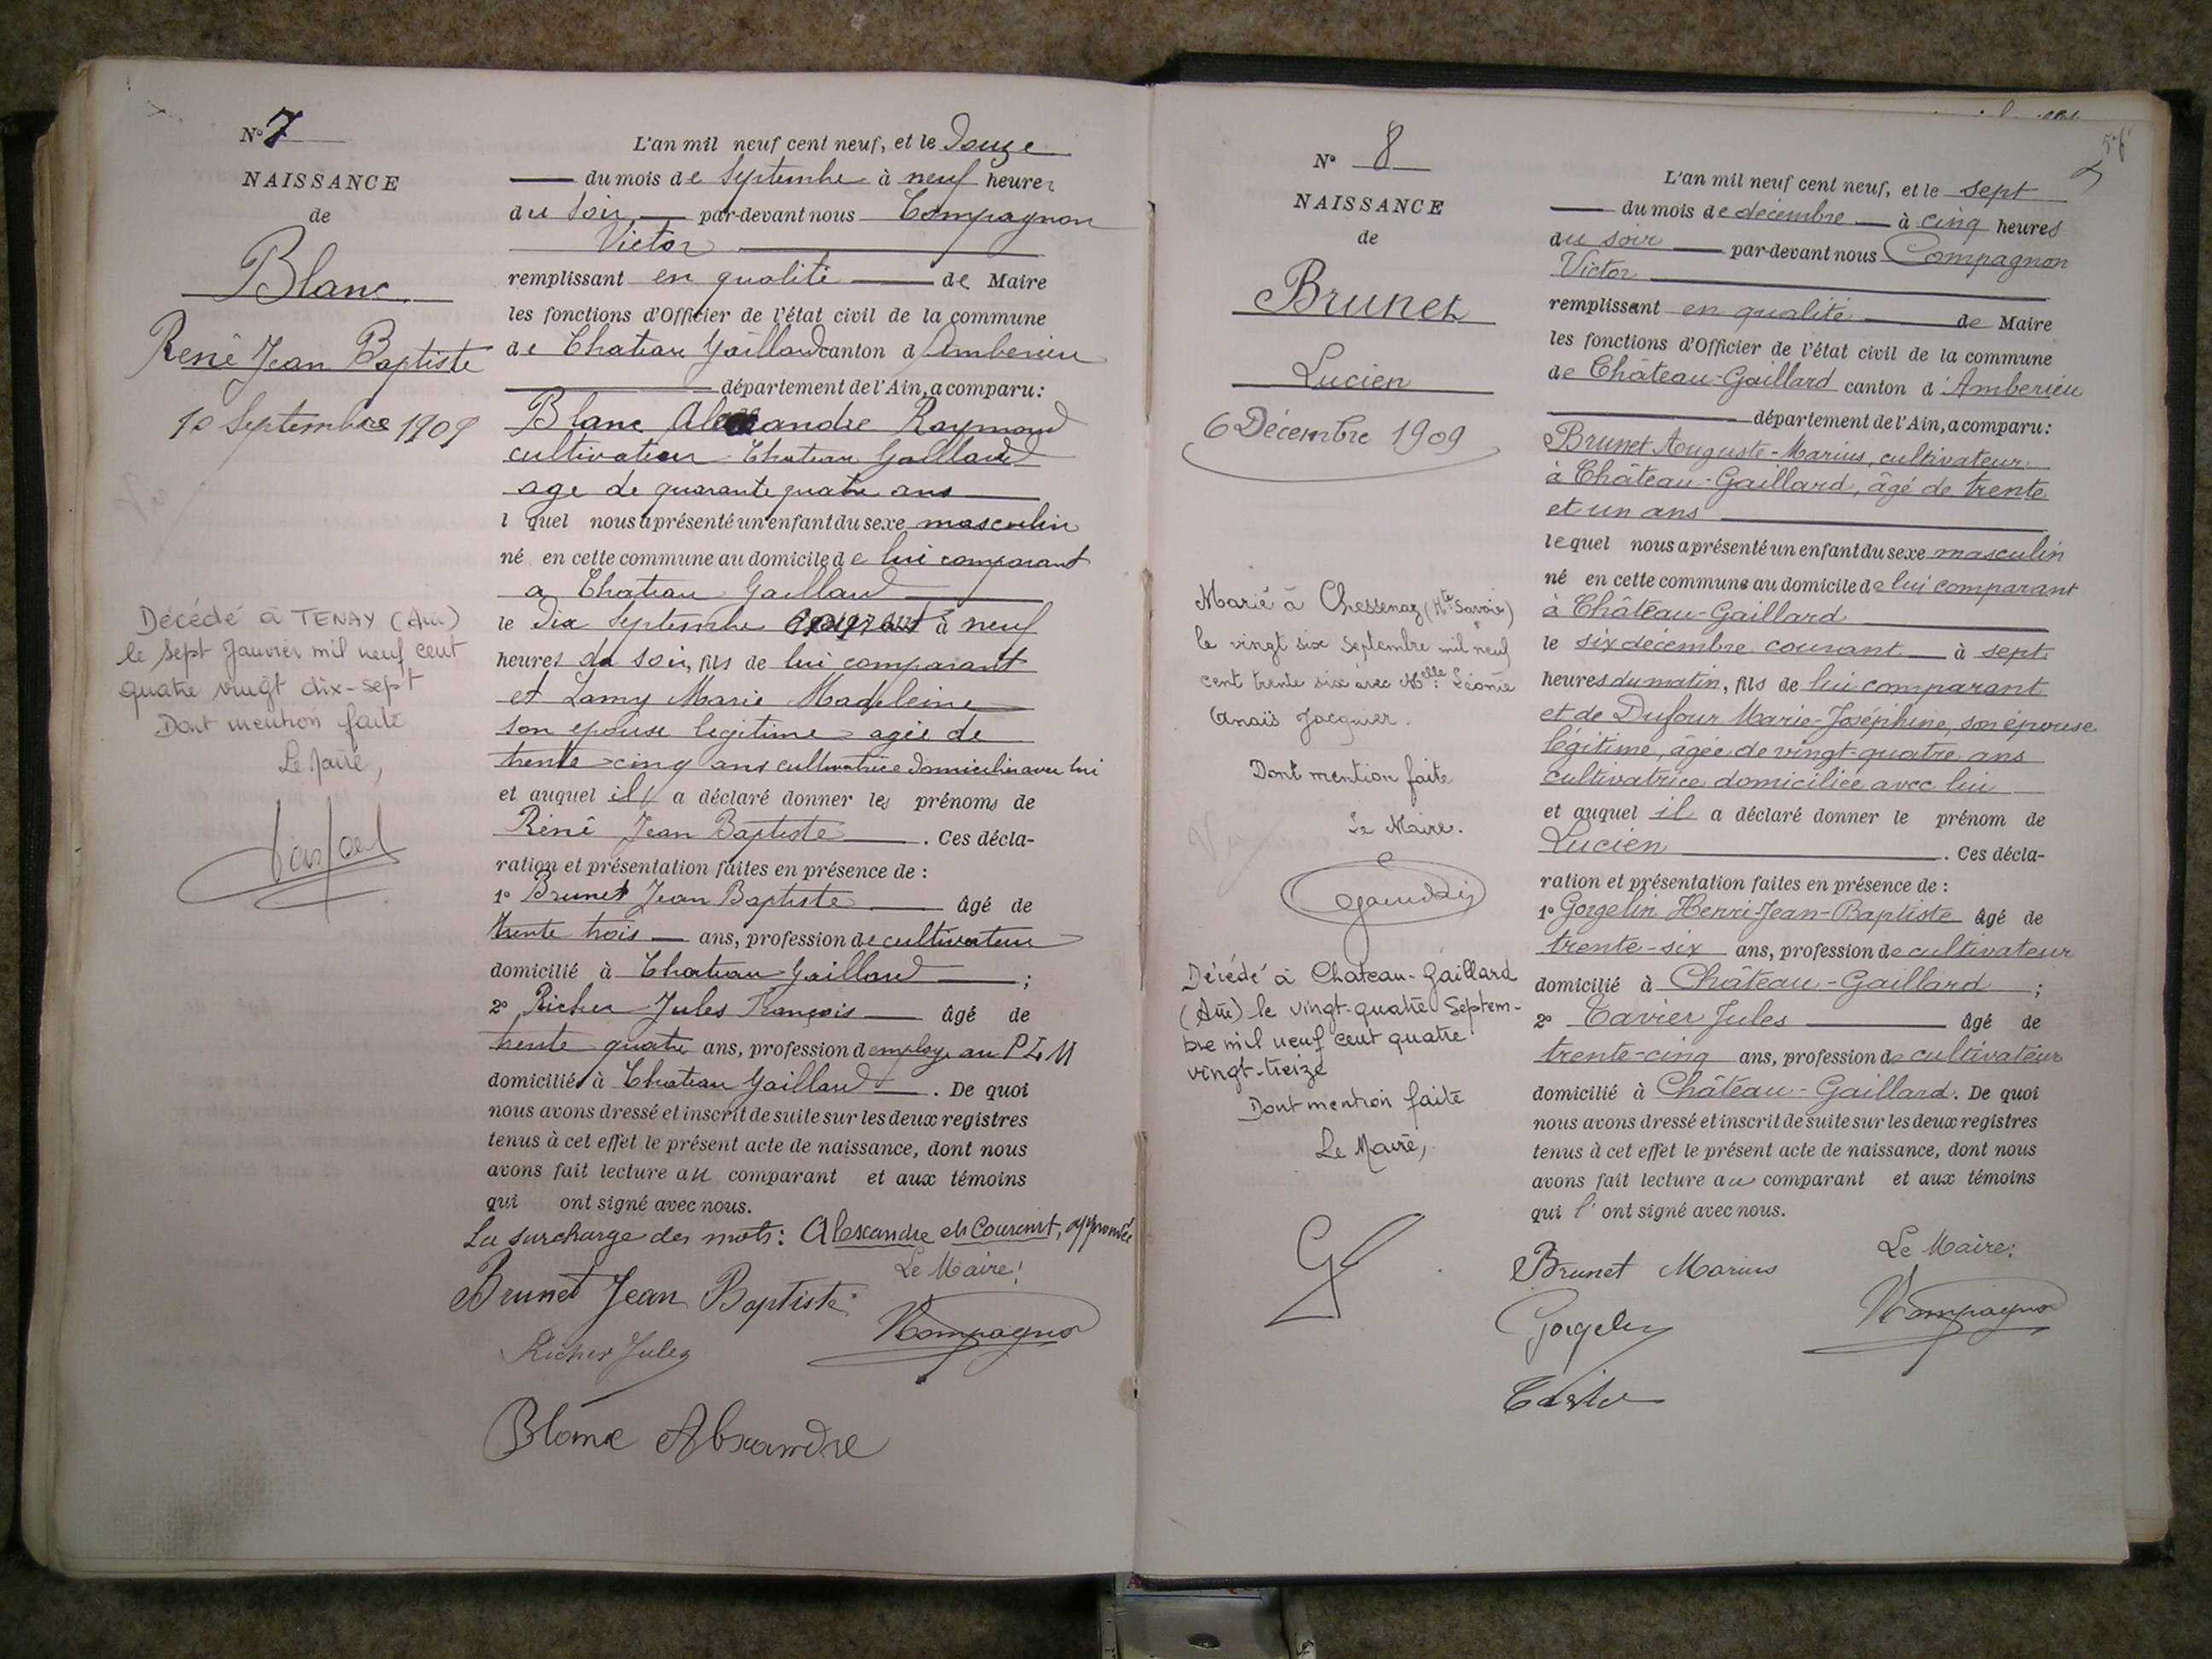 N° 7
NAISSANCE
de
Blanc
René Jean Baptiste
10 Septembre 1909
Décédé à TENAY (Ain)
le sept Janvier mil neuf cent
quatre vingt dix-sept
Dont mention faite
Le Maire,
L'an mil neuf cent neuf, et le Douze
du mois de Septembre à neuf heures
du soir par-devant nous Compagnon
Victor
remplissant en qualité de Maire
les fonctions d'Officier de l'état civil de la commune
de Chateau Gaillard canton d'Ambérieu
département de l'Ain, a comparu:
Blanc Alexandre Raymond
cultivateur Chateau Gaillard
agé de quarante quatre ans
l quel nous a présenté un enfant du sexe masculin
né en cette commune au domicile de lui comparant
a Chateau Gaillard
le dix Septembre courant à neuf
heures du soir, fils de lui comparant
et Lamy Marie Madeleine
son épouse legitime agée de
trente-cinq ans cultivatrice domiciliée avec lui
et auquel il a déclaré donner les prénoms de
Réné Jean Baptiste . Ces décla-
ration et présentation faites en présence de :
1° Brunet Jean Baptiste âgé de
trente trois ans, profession de cultivateur
domicilié à Chateau Gaillard ;
2° Richer Jules François âgé de
trente quatre ans, profession d employé au P L M
domiciliés à Chateau Gaillard . De quoi
nous avons dressé et inscrit de suite sur les deux registres
tenus à cet effet le présent acte de naissance, dont nous
avons fait lecture au comparant et aux témoins
qui ont signé avec nous.
La surcharge des mots: Alexandre et Courant, approuvée
Le Maire!
Brunet Jean Baptiste
VCompagnon
Richer Jules
Blanc Alexandre
N° 8
NAISSANCE
de
Brunet
Lucien
6 Décembre 1909
Marié à Chessenaz (Hte Savoie)
le vingt six Septembre mil neuf
cent trente six avec Melle Léonie
Anaïs Jacquier.
Dont mention faite
Le Maire.
Décédé à Chateau-Gaillard
(Ain) le vingt-quatre Septem-
bre mil neuf cent quatre
vingt-treize
Dont mention faite
Le Maire,
L'an mil neuf cent neuf, et le sept
du mois de décembre à cinq heures
du soir par-devant nous Compagnon
Victor
remplissant en qualité de Maire
les fonctions d'Officier de l'état civil de la commune
de Château-Gaillard canton d'Amberieu
département de l'Ain, a comparu:
Brunet Auguste-Marius, cultivateur
à Château-Gaillard, âgé de trente
et un ans
lequel nous a présenté un enfant du sexe masculin
né en cette commune au domicile de lui comparant
à Château-Gaillard
le six décembre courant à sept
heures du matin, fils de lui comparant
et de Dufour Marie-Joséphine, son épouse
légitime, âgée de vingt-quatre ans
cultivatrice domiciliée avec lui
et auquel il a déclaré donner le prénom de
Lucien . Ces décla-
ration et présentation faites en présence de :
1° Gorgelin Henri-Jean-Baptiste âgé de
trente-six ans, profession de cultivateur
domicilié à Château-Gaillard ;
2° Tavier Jules âgé de
trente-cinq ans, profession de cultivateur
domicilié à Château-Gaillard. De quoi
nous avons dressé et inscrit de suite sur les deux registres
tenus à cet effet le présent acte de naissance, dont nous
avons fait lecture au comparant et aux témoins
qui l'ont signé avec nous.
Le Maire:
Brunet Marius
VCompagnon
Gorgelin
Tavier